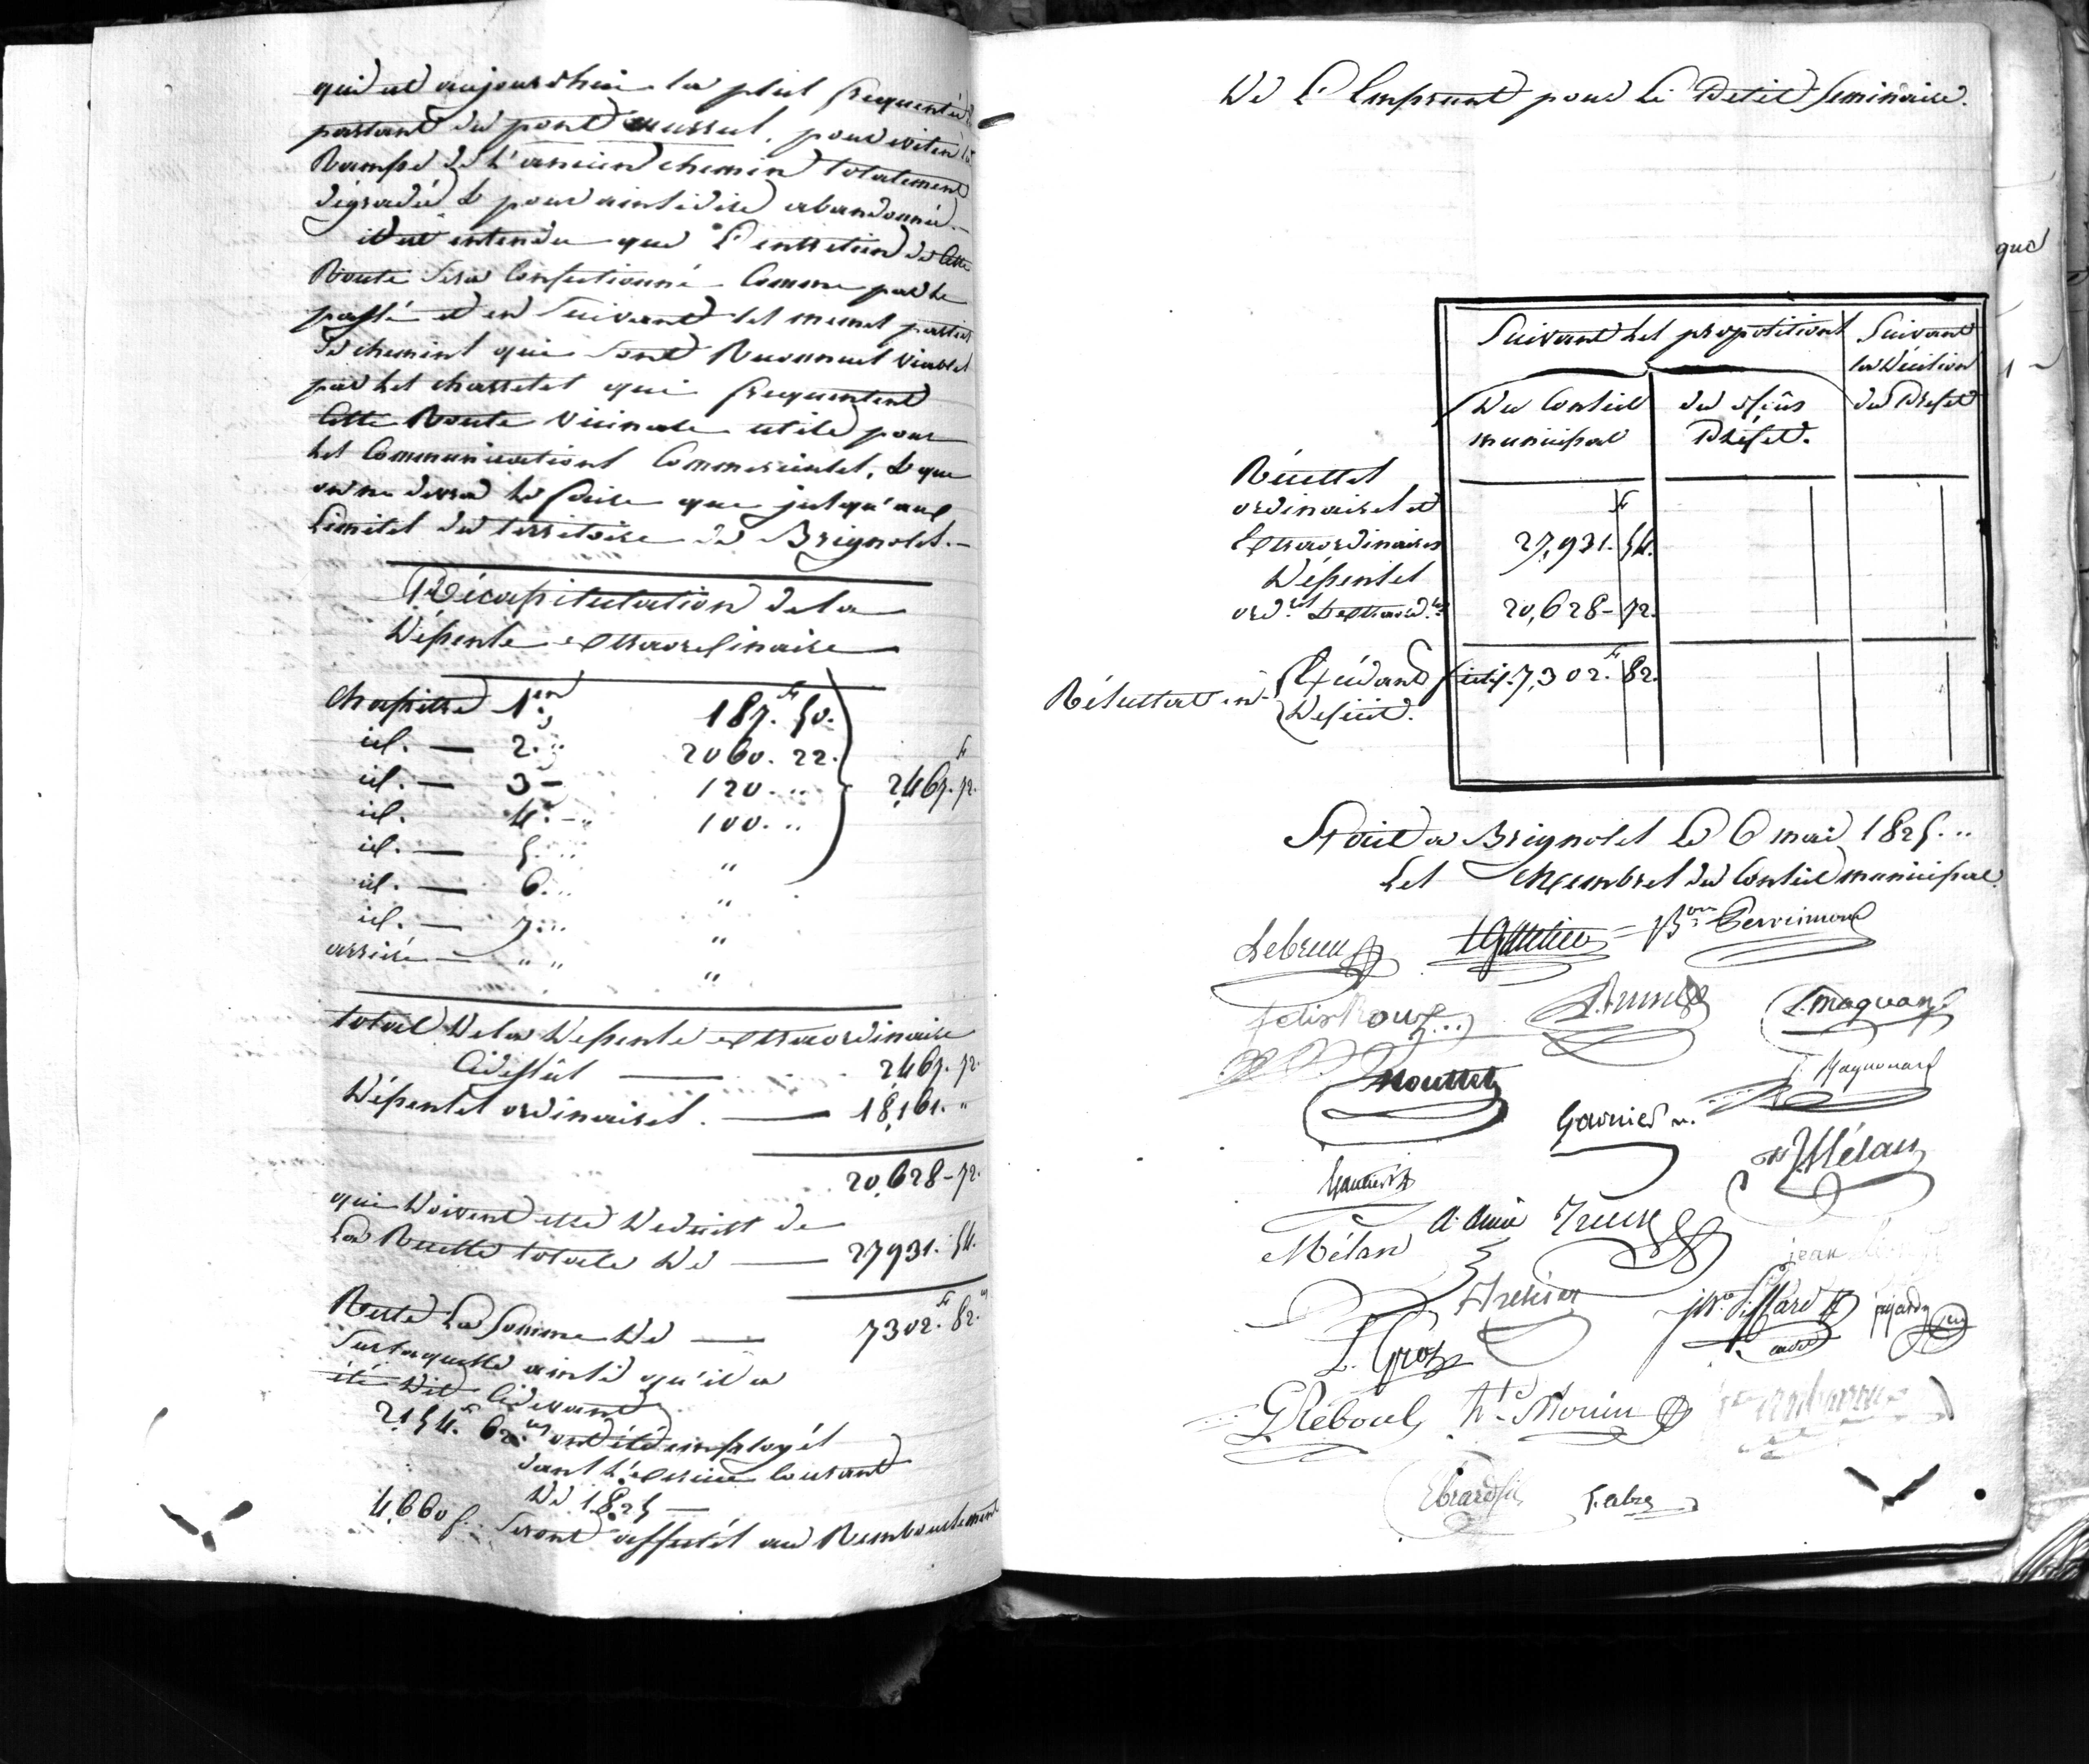 qui est aujourd'hui la plus frequentée
partant du pont pour eviter la
Rampe de l'ancien chemin totalement
dégradé & pour ainsi dire abandonné.-
il est entendu que l'entretien de cette
Route sera Confectionné Comme par le
passé et en suivant les memes parties
de chemins qui sont Reconnues viables
par les charretes qui frequentent
Cette Route Vicinale utile pour
les Communications Commerciales, & que
on ne devra le faire que jusqu'aux
Limites du territoire de Brignoles.-
Récapitulation de la
Dépense extraordinaire
Chapitre 1er 187.f 50.
id. — 2.. 2060. 22.
id. — 3 — 120. .. 2,467.f 72.
id. 4. — 100. ..
id. — 5. .. "
id. — 6. .. "
id. — 7. .. "
arriéré — " " "
total De la Depense extraordinaire
Cidessus — 2467. 72.
Dépenses ordinaires. — 18,161. "
20,628 - 72.
qui Doivent etre Deduites de
La Recette totale De — 27931. 54.
Reste La Somme De — 7302.f 82.c
Sur laquelle ainsi qu'il a
été Dit Cidevant
2154.f 62.c ont été employés
dans l'exercice Courant
De 1825 —
4,660 f. Seront affectés au Remboursement
De L'Emprunt pour Le Petit Seminaire.
Suivant les propositions Suivant
la Décision
Du Conseil du Sous du Préfet
municipal Préfet.
Récettes
ordinaires et f
Extraordinaires 27,931. 54.
Dépenses
ord.res & extraord.res 20,628 - 72.
Résultat en Excédant 7,302.f 82.
Deficit.
Fait a Brignoles Le 6 mai 1825. ..
Les Membres du Conseil municipal.
Lebrun Bon Perrimond
felix Roux L. maquan
Mouttet J. Raynouard
Garnier n.
Gautier
Mélan
Mélan jean
L. Gros
G Reboul hte Morin
Ebrard fils fabre